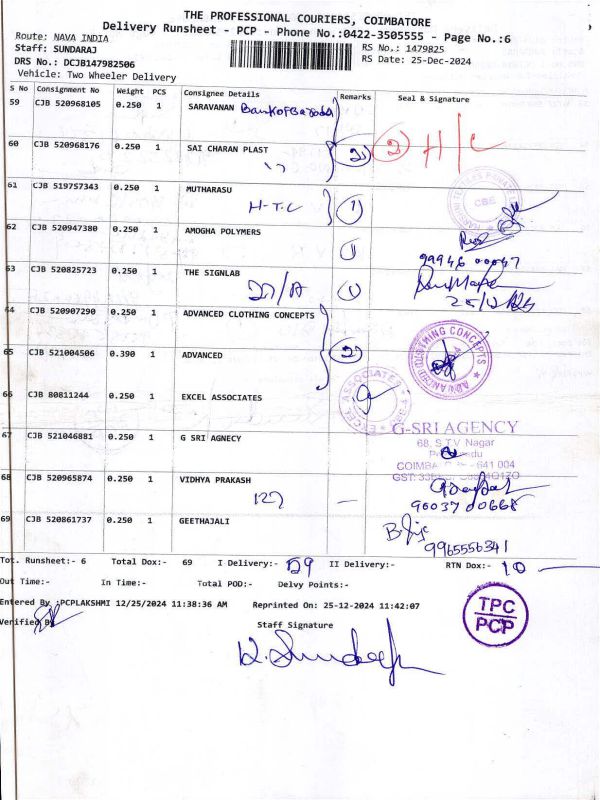 THE PROFESSIONAL COURIERS, COIMBATORE
Delivery Runsheet - PCP - Phone No.:0422-3505555 - Page No.:6
Route: NAVA INDIA
RS No.: 1479825
Staff: SUNDARAJ
RS Date: 25-Dec-2024
DRS No.: DCJB147982506
Vehicle: Two Wheeler Delivery
S No Consignment No Weight PCS Consignee Details Remarks Seal & Signature
59 CJB 520968105 0.250 1 SARAVANAN Bank of Baroda
60 CJB 520968176 0.250 1 SAI CHARAN PLAST 2 2 H/C
61 CJB 519757343 0.250 1 MUTHARASU
H-T.C 1
62 CJB 520947380 0.250 1 AMOGHA POLYMERS 1
99946 00047
63 CJB 520825723 0.250 1 THE SIGNLAB 1
64 CJB 520907290 0.250 1 ADVANCED CLOTHING CONCEPTS
65 CJB 521004506 0.390 1 ADVANCED 2
ADVANCED CLOTHING CONCEPTS
66 CJB 80811244 0.250 1 EXCEL ASSOCIATES
EXCEL ASSOCIATES
67 CJB 521046881 0.250 1 G SRI AGNECY
G-SRI AGENCY
68, S.T.V. Nagar
COIMBA - 641 004
68 CJB 520965874 0.250 1 VIDHYA PRAKASH
9003700668
69 CJB 520861737 0.250 1 GEETHAJALI
9965556341
Tot. Runsheet:- 6 Total Dox:- 69 I Delivery:- 59 II Delivery:- RTN Dox:- 10
Out Time:- In Time:- Total POD:- Delvy Points:-
Entered By :PCPLAKSHMI 12/25/2024 11:38:36 AM Reprinted On: 25-12-2024 11:42:07
Verified By
Staff Signature
TPC
PCP